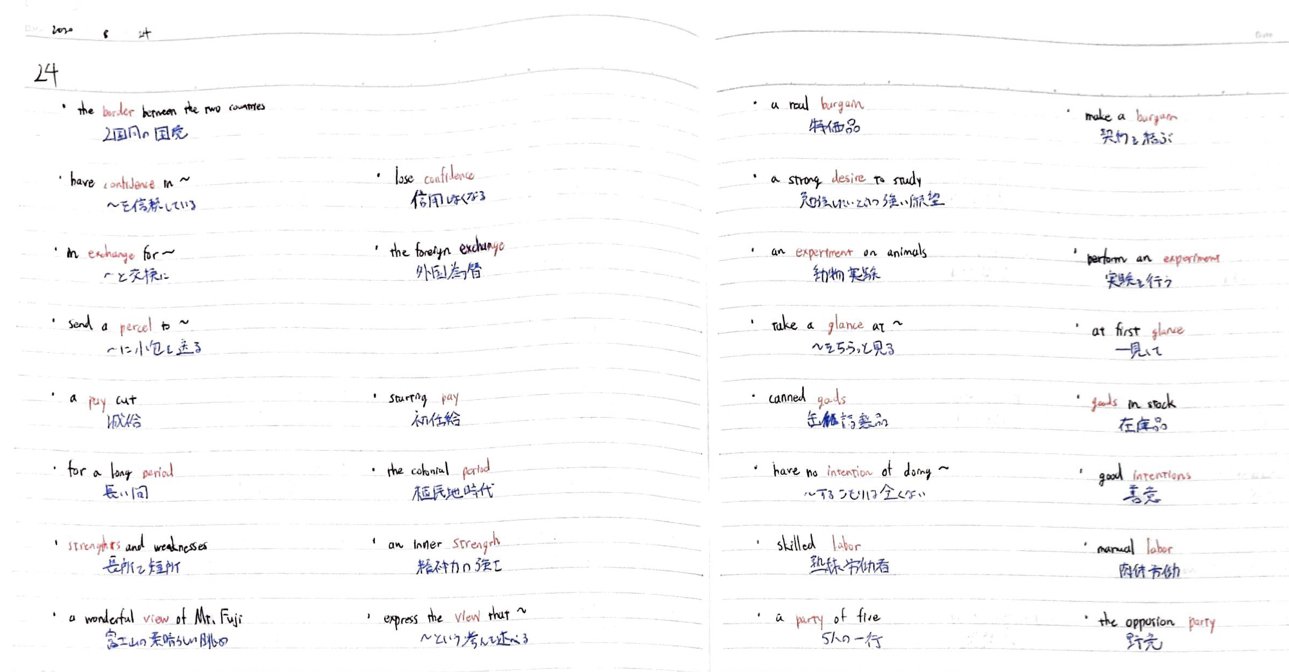 2020 8 24
24
・the border between the two countries
2国間の国境
・have confidence in ～
～を信頼している
・lose confidence
信用しなくなる
・in exchange for ～
～と交換に
・the foreign exchange
外国為替
・send a percel to ～
～に小包を送る
・a pay cut
減給
・starting pay
初任給
・for a long period
長い間
・the colonial period
植民地時代
・strenghts and weaknesses
長所と短所
・an inner strength
精神力の強さ
・a wonderful view of Mt. Fuji
富士山の素晴らしい眺め
・express the view that ～
～という考えを述べる
・a real burgain
特価品
・make a burgain
契約を結ぶ
・a strong desire to study
勉強したいという強い願望
・an experiment on animals
動物実験
・perform an experiment
実験を行う
・take a glance at ～
～をちらっと見る
・at first glance
一見して
・canned goods
缶詰製品
・goods in stock
在庫品
・have no intention of doing ～
～するつもりは全くない
・good intentions
善意
・skilled labor
熟練労働者
・manual labor
肉体労働
・a party of five
5人の一行
・the opposion party
野党